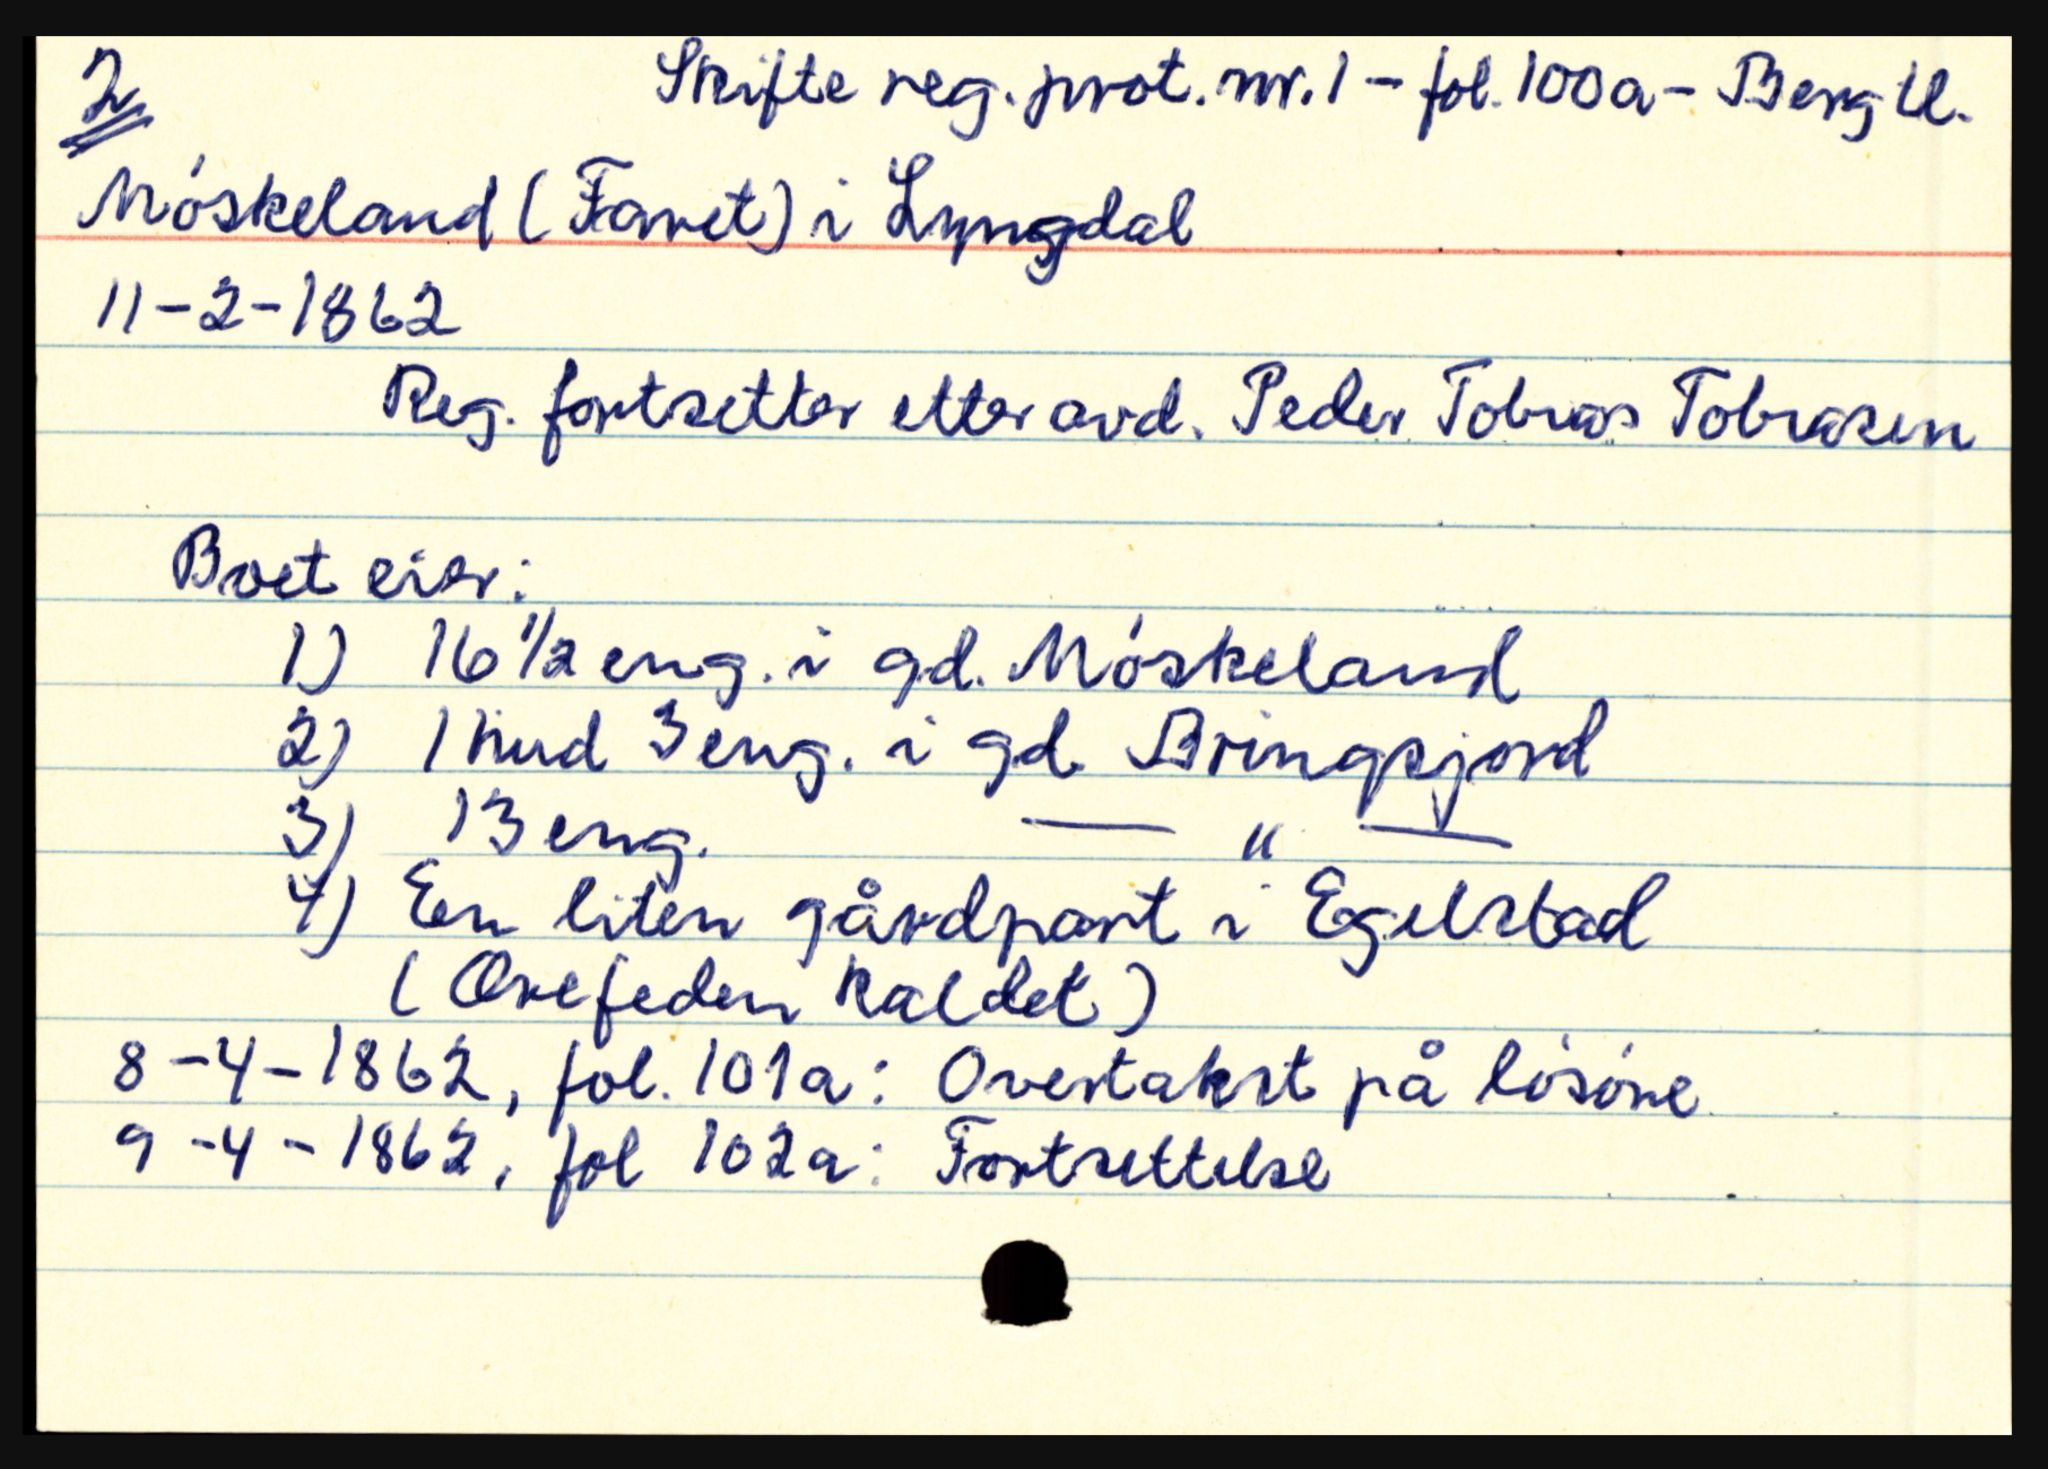 2
Skifte reg. prot. nr. 1 - fol. 100a - Berg tl.
Móskeland (Faret) i Lyngdal
11-2-1862
Reg. fortsetter etter avd. Peder Tobias Tobiasen
Boet eier:
1) 16 1/2 eng. i gd. Móskeland
2) 1 hud 3 eng. i gd. Bringsjord
3) 13 eng. — " —
4) En liten gårdpart i Egelstad
(Orefeden kaldet)
8-4-1862, fol. 101a: Overtakst på lósóre
9-4-1862, fol 102a: Fortsettelse